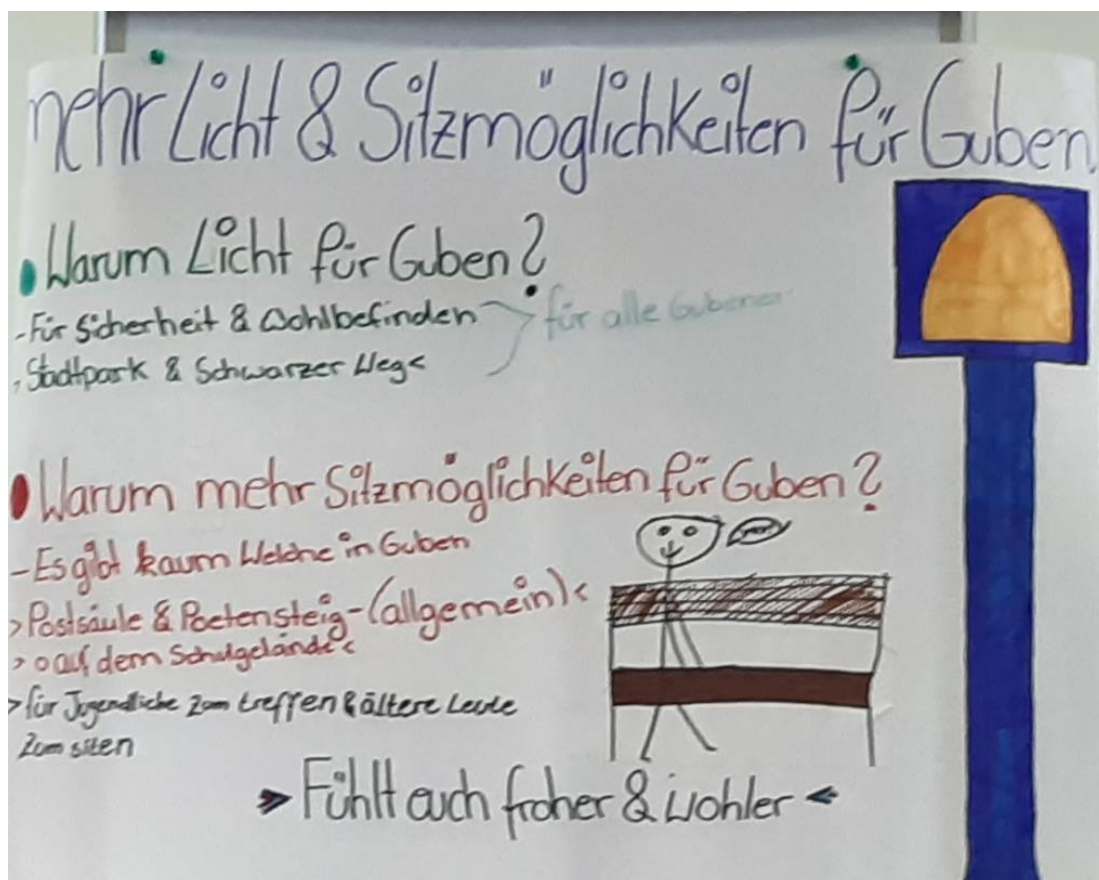 mehr Licht & Sitzmöglichkeiten für Guben
Warum Licht für Guben?
-Für Sicherheit & Wohlbefinden
für alle Gubener
, Stadtpark & Schwarzer Weg<
Warum mehr Sitzmöglichkeiten für Guben?
-Es gibt kaum Welche in Guben
>Postsäule & Poetensteig-(allgemein)<
> auf dem Schulgelände<
>für Jugendliche zum treffen & ältere Leute
zum siten
Fühlt euch froher & wohler